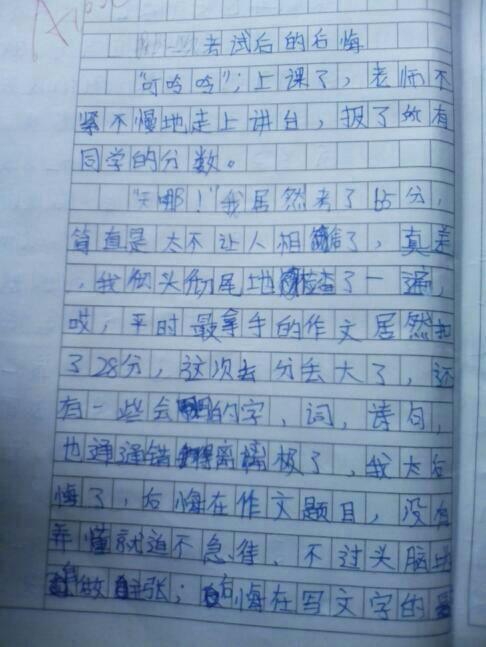 考试后的后悔
"叮呤呤"；上课了，老师不
紧不慢地走上讲台，报了所有
同学的分数。
"天哪！"我居然考了65分，
简直是太不让人相信了，真差
，我彻头彻尾地检查了一遍，
哎，平时最拿手的作文居然扣
了28分，这次丢分丢大了，还
有一些会的字、词，诗句，
也通通错得离谱极了，我太后
悔了，后悔在作文题目，没有
弄懂就迫不急待，不过头脑地
自做主张；后悔在写文字的